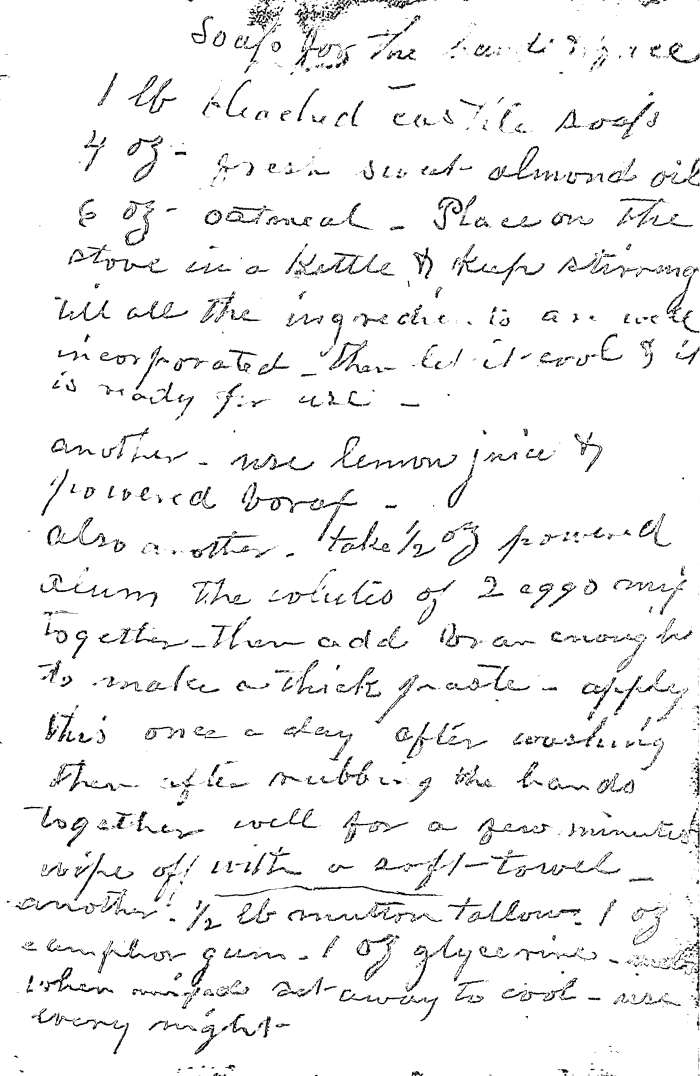 Soap for the hands & face
1 lb bleached castile soap
4 oz - fresh sweet almond oil
6 oz - oatmeal - Place on the
stove in a kettle & keep stirring
till all the ingredients are well
incorporated - then let it cool & it
is ready for use -
another - use lemon juice &
powered borax -
also another - take 1/2 oz powered
alum the whites of 2 eggs mix
together - then add bran enough
to make a thick paste - apply
this once a day after washing
then after rubbing the hands
together well for a few minutes
wipe off with a soft towel -
another. 1/2 lb mutton tallow. 1 oz
camphor gum - 1 oz glycerine - melt
when mixed set away to cool - use
every night -